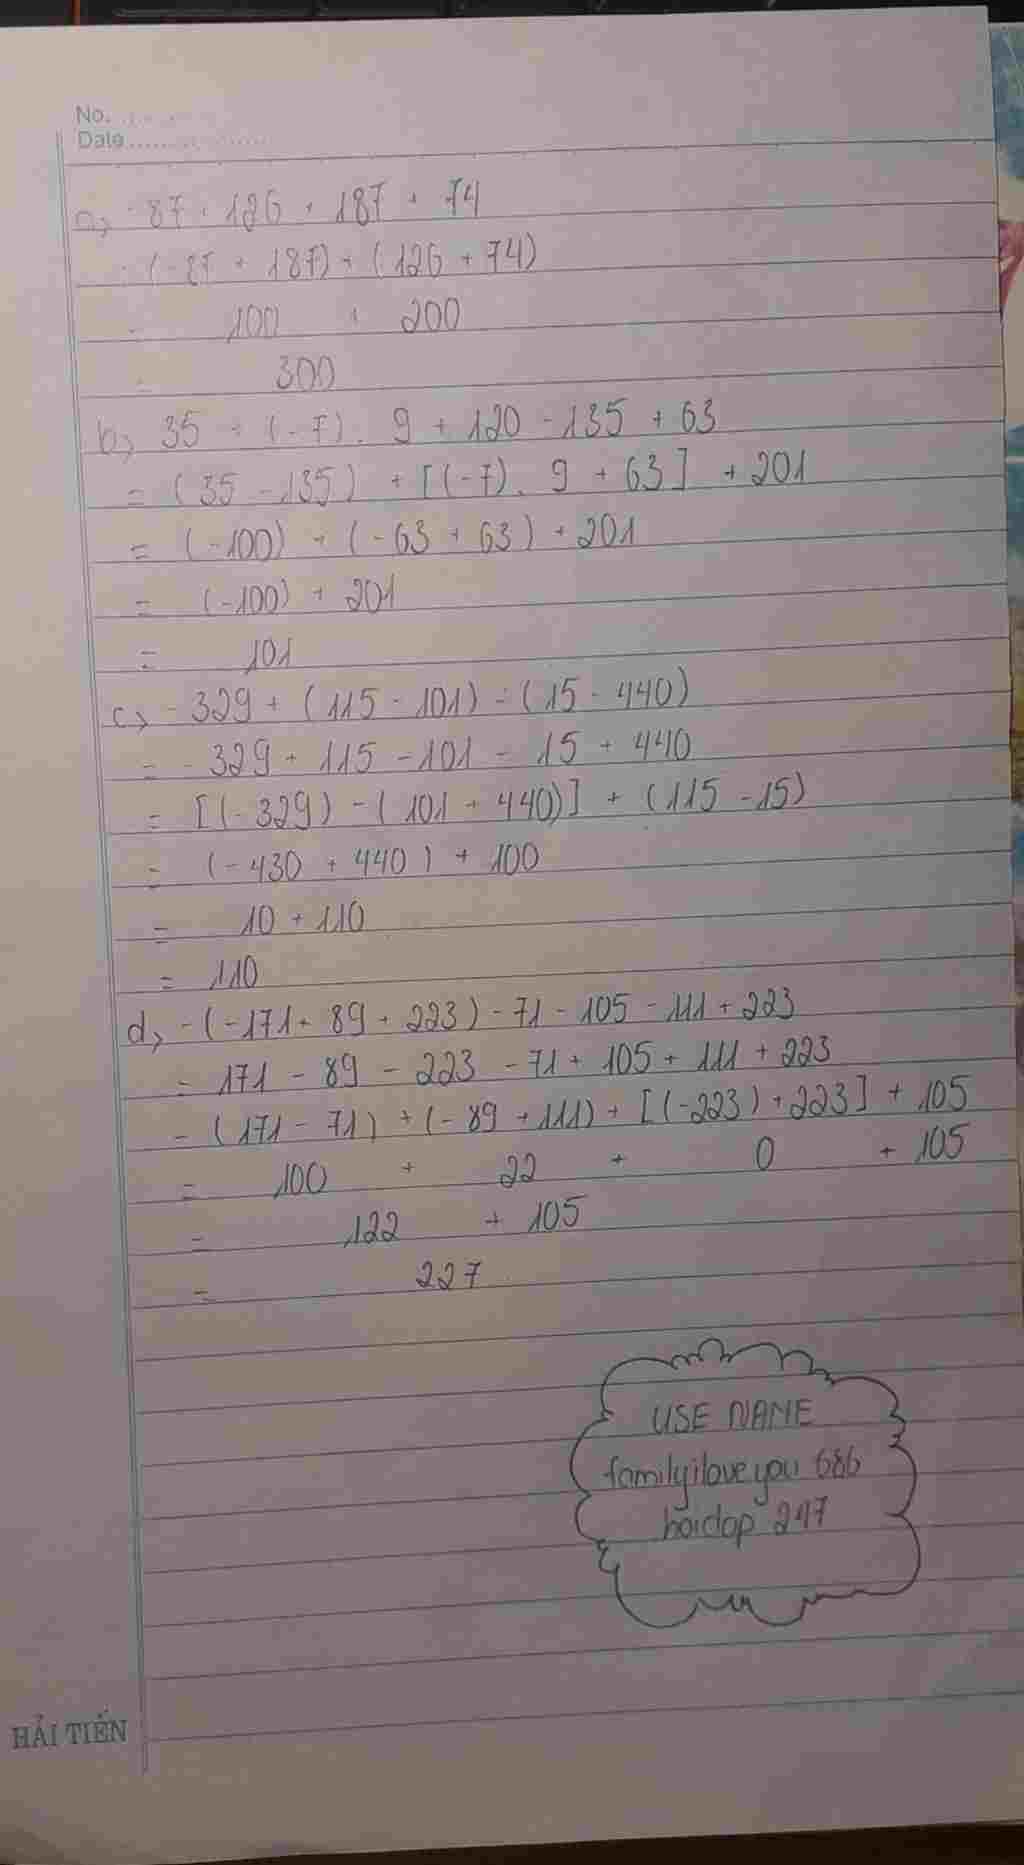 No.
Date
a, -87 + 126 + 187 + 74
= (-87 + 187) + (126 + 74)
= 100 + 200
= 300
b, 35 + (-7) . 9 + 120 - 135 + 63
= (35 - 135) + [(-7) . 9 + 63] + 201
= (-100) + (-63 + 63) + 201
= (-100) + 201
= 101
c, -329 + (115 - 101) - (15 - 440)
= -329 + 115 - 101 - 15 + 440
= [(-329) - (101 + 440)] + (115 - 15)
= (-430 + 440) + 100
= 10 + 110
= 110
d, -(-171 + 89 + 223) - 71 - 105 - 111 + 223
= 171 - 89 - 223 - 71 + 105 + 111 + 223
= (171 - 71) + (-89 + 111) + [(-223) + 223] + 105
= 100 + 22 + 0 + 105
= 122 + 105
= 227
USE NAME
familyiloveyou 686
hoidap 247
HẢI TIẾN